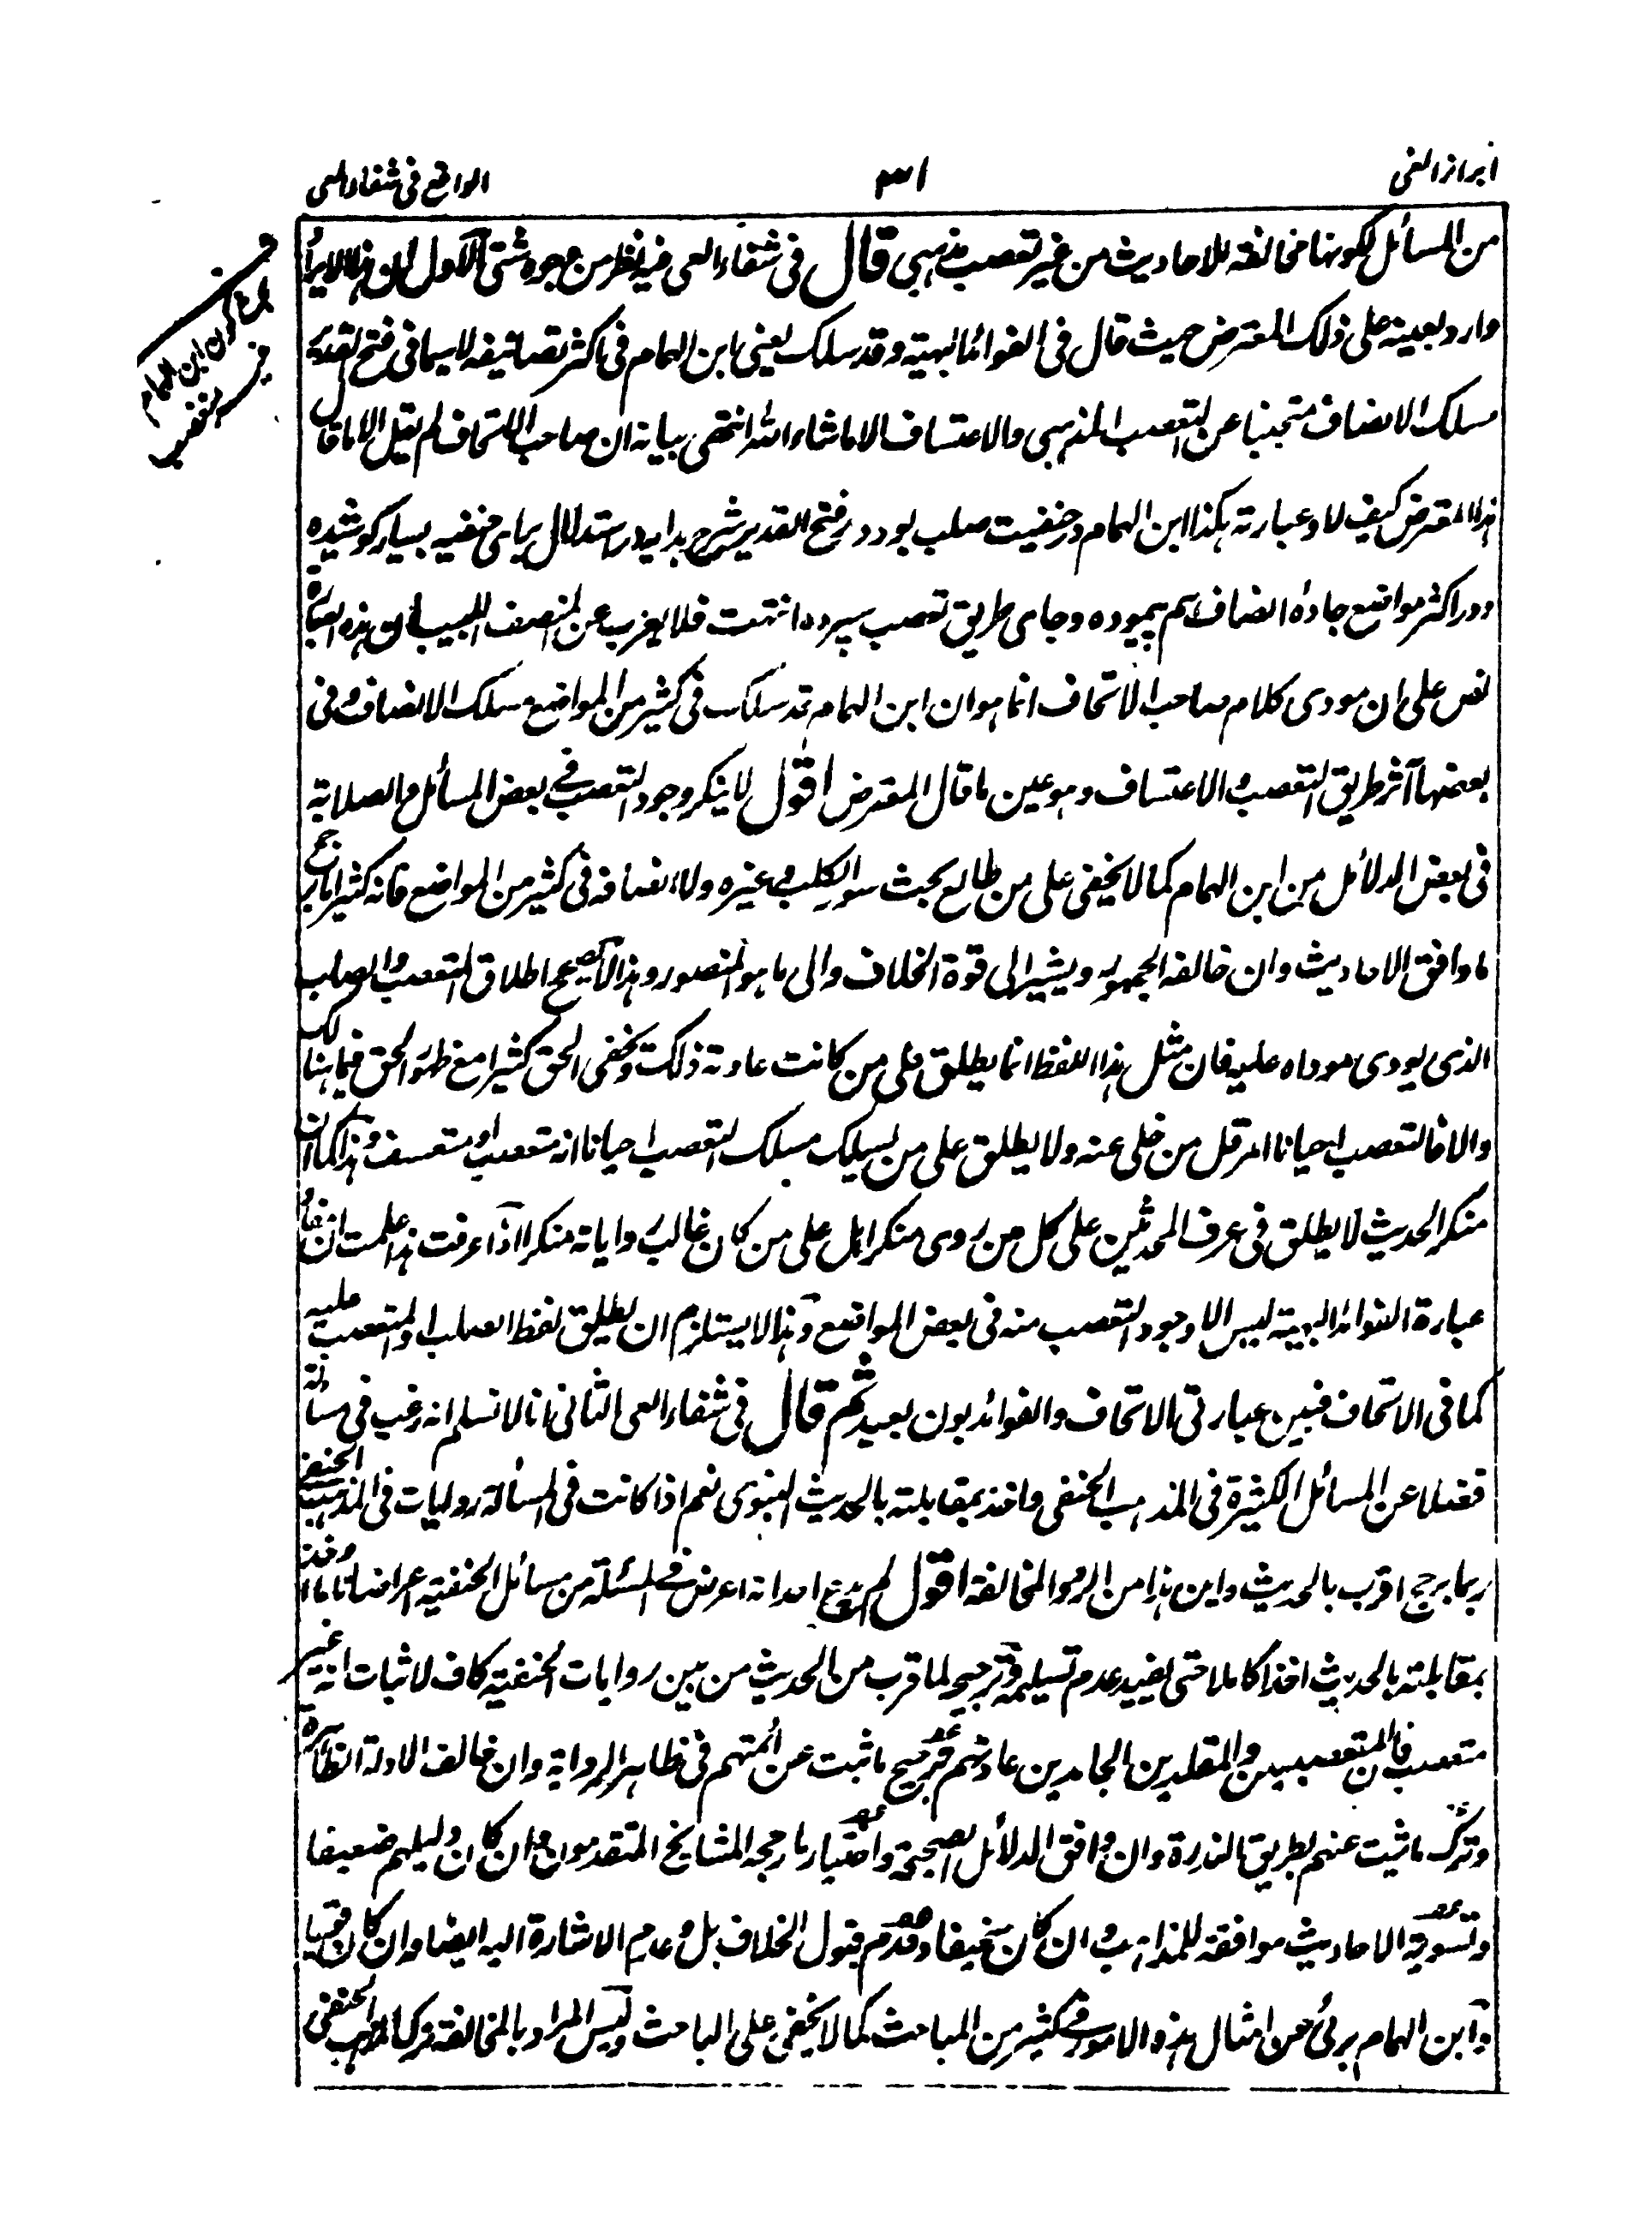 ابراز الغی
۱۳
الواقع فی شفاء العی
من المسائل لکونہا مخالفة للاحادیث من غیر تعصب مذہبی قال فی شفاء العی فیہ نظر من وجوہ شتی الاول ان ہذا الایراد
وارد بعینہ علی ذلک المعترض حیث قال فی الفوائد البہیة وقد سلک یعنی ابن الہمام فی اکثر تصانیفہ لا سیما فی فتح القدیر
مسلک الانصاف متجنبا عن التعصب المذہبی والاعتساف الا ماشاء اللہ انتہی بیانہ ان صاحب الاتحاف لم یقل الا ما قال
ہذا المعترض کیف لا وعبارتہ ہکذا ابن الہمام در حنفیت صلب بود در فتح القدیر شرح ہدایہ در استدلال برای حنفیہ بسیار کوشیدہ
ودر اکثر مواضع جادۂ انصاف ہم پیمودہ وجای طریق تعصب سپردہ انتہت فلا یعزب عن المنصف اللبیب ان ہذہ العبارة
نص علی ان مودی کلام صاحب الاتحاف انما ہو ان ابن الہمام قد سلک فی کثیر من المواضع مسلک الانصاف وفی
بعضہا آثر طریق التعصب والاعتساف وہو عین ما قال المعترض اقول لا ینکر وجود التعصب فی بعض المسائل والصلابة
فی بعض الدلائل من ابن الہمام کما لا یخفی علی من طالع بحث سور الکلب وغیرہ ولا انصافہ فی کثیر من المواضع فانہ کثیرا ما یرجح
ما وافق الاحادیث وان خالفہ الجمہور ویشیر الی قوة الخلاف والی ما ہو المنصور وہذا لا یصح اطلاق المتعصب والصلب
الذی یودی موداہ علیہ فان مثل ہذا اللفظ انما یطلق علی من کانت عادتہ ذلک ویخفی الحق کثیرا مع ظہور الحق فیما ہنالک
والا فالتعصب احیانا امر قل من خلی عنہ ولا یطلق علی من یسلک مسلک التعصب احیانا انہ متعصب او متعسف وہذا کما ان
منکر الحدیث لا یطلق فی عرف المحدثین علی کل من روی منکرا بل علی من کان غالب روایاتہ منکرا اذا عرفت ہذا علمت ان مفاد
عبارة الفوائد البہیة لیس الا وجود التعصب منہ فی بعض المواقع وہذا لا یستلزم ان یطلق لفظ الصلب او المتعصب علیہ
کما فی الاتحاف فبین عبارتی الاتحاف والفوائد بون بعید ثم قال فی شفاء العی الثانی انا لا نسلم انہ رغب فی مسألة
فضلا عن المسائل الکثیرة فی المذہب الحنفی واخذ بمقابلتہ بالحدیث النبوی نعم اذا کانت فی المسألة روایات فی المذہب الحنفی
ربما یرجح اقرب بالحدیث واین ہذا من الرد والمخالفة اقول لم یدع احد انہ اعرض فی المسئلة من مسائل الحنفیة اعراضا تاما واخذ
بمقابلتہ بالحدیث اخذا کاملا حتی یفید عدم تسلیمہ وترجیحہ لما قرب من الحدیث من بین روایات الحنفیة کاف لاثبات انہ غیر
متعصب فان المتعصبین والمقلدین الجامدین عادتہم ترجیح ما ثبت عن ائمتہم فی ظاہر الروایة وان خالف الادلة الظاہرة
وترک ما ثبت عنہم بطریق الندرة وان وافق الدلائل الصحیحة واختیار ما رجحہ المشایخ المتقدمون وان کان دلیلہم ضعیفا
وتسویة الاحادیث موافقة للمذاہب وان کان سخیفا وعدم قبول الخلاف بل وعدم الاشارة الیہ ایضا وان کان قویا
وابن الہمام بری عن امثال ہذہ الامور فی کثیر من المباحث کما لا یخفی علی الباحث ولیس المراد بالمخالفة ترک المذہب الحنفی